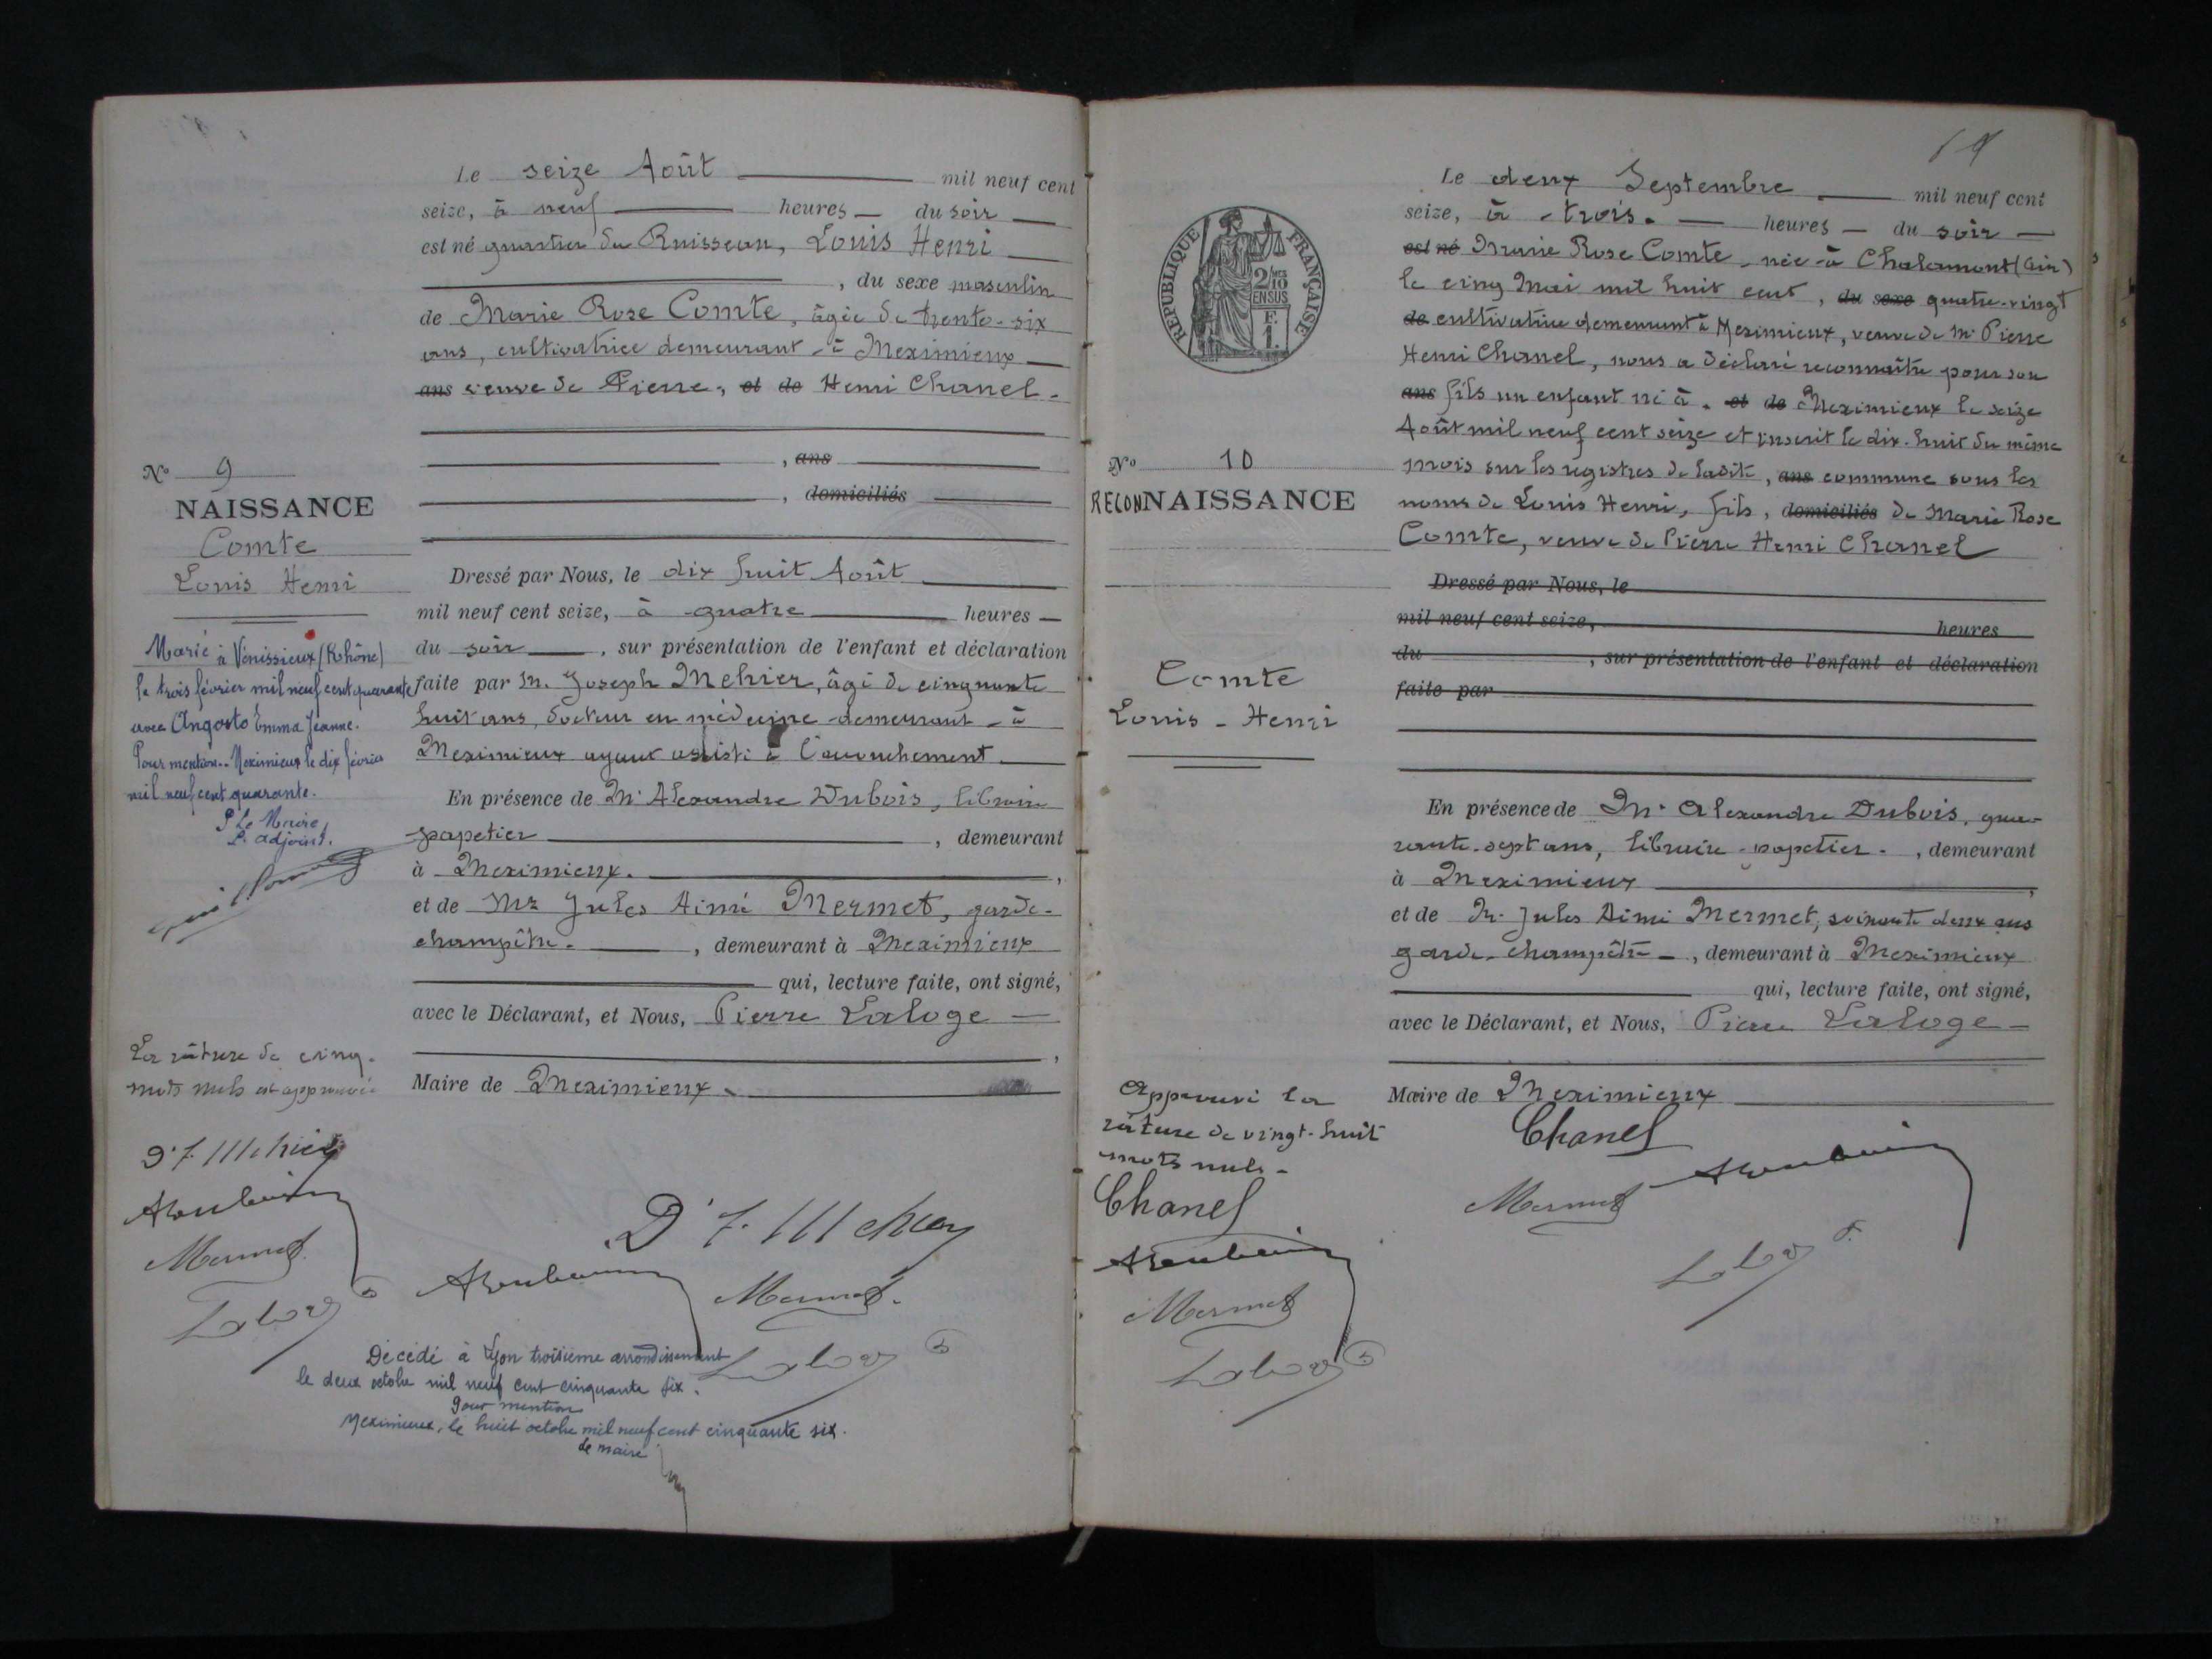 Le seize Août mil neuf cent
seize, à neuf heures du soir
est né quartier du Ruisseau, Louis Henri
, du sexe masculin
de Marie Rose Comte, âgée de trente-six
ans, cultivatrice demeurant à Meximieux
ans veuve de Pierre, et de Henri Chanel.
, ans
, domiciliés
No 9
NAISSANCE
Comte
Louis Henri
Marié à Vénissieux (Rhône)
le trois février mil neuf cent quarante
avec Angosto Emma Jeanne.
Pour mention.. Meximieux le dix février
mil neuf cent quarante.
P Le Maire,
L'adjoint.
Dressé par Nous, le dix huit Août
mil neuf cent seize, à quatre heures
du soir, sur présentation de l'enfant et déclaration
faite par M. Joseph Mehier, âgé de cinquante
huit ans, docteur en médecine demeurant à
Meximieux ayant assisté à l'accouchement
En présence de Mr Alexandre Dubois, libraire
papetier, demeurant
à Meximieux.
et de Mr Jules Aimé Mermet, garde-
champêtre, demeurant à Meximieux
qui, lecture faite, ont signé,
avec le Déclarant, et Nous, Pierre Laloge
Maire de Meximieux.
La râture de cinq
mots nuls est approuvée
Dr J. Mehier
Mermet
Dr J. Mehier
Mermet.
Décédé à Lyon troisième arrondissement
le deux octobre mil neuf cent cinquante six.
Pour mention
Meximieux, le huit octobre mil neuf cent cinquante six.
Le maire
19
RÉPUBLIQUE FRANÇAISE
2/10 MES
EN SUS
F.
1.
Le deux Septembre mil neuf cent
seize, à trois. heures du soir
est né Marie Rose Comte, née à Chalamont (Ain)
le cinq Mai mil huit cent, du sexe quatre-vingt
de cultivatrice demeurant à Meximieux, veuve de Mr Pierre
Henri Chanel, nous a déclaré reconnaître pour son
ans fils un enfant né à. et de Meximieux le seize
Août mil neuf cent seize et inscrit le dix-huit du même
mois sur les registres de ladite, ans commune sous les
noms de Louis Henri, fils, domiciliés de Marie Rose
Comte, veuve de Pierre Henri Chanel
No 10
RECONNAISSANCE
Comte
Louis-Henri
Dressé par Nous, le
mil neuf cent seize, heures
du, sur présentation de l'enfant et déclaration
faite par
En présence de Mr Alexandre Dubois, qua-
rante-sept ans, libraire-papetier., demeurant
à Meximieux
et de Mr Jules Aimé Mermet, soixante deux ans
garde-champêtre, demeurant à Meximieux
qui, lecture faite, ont signé,
avec le Déclarant, et Nous, Pierre Laloge
Maire de Meximieux
Approuvé la
râture de vingt-huit
mots nuls-
Chanel
Mermet
Chanel
Mermet